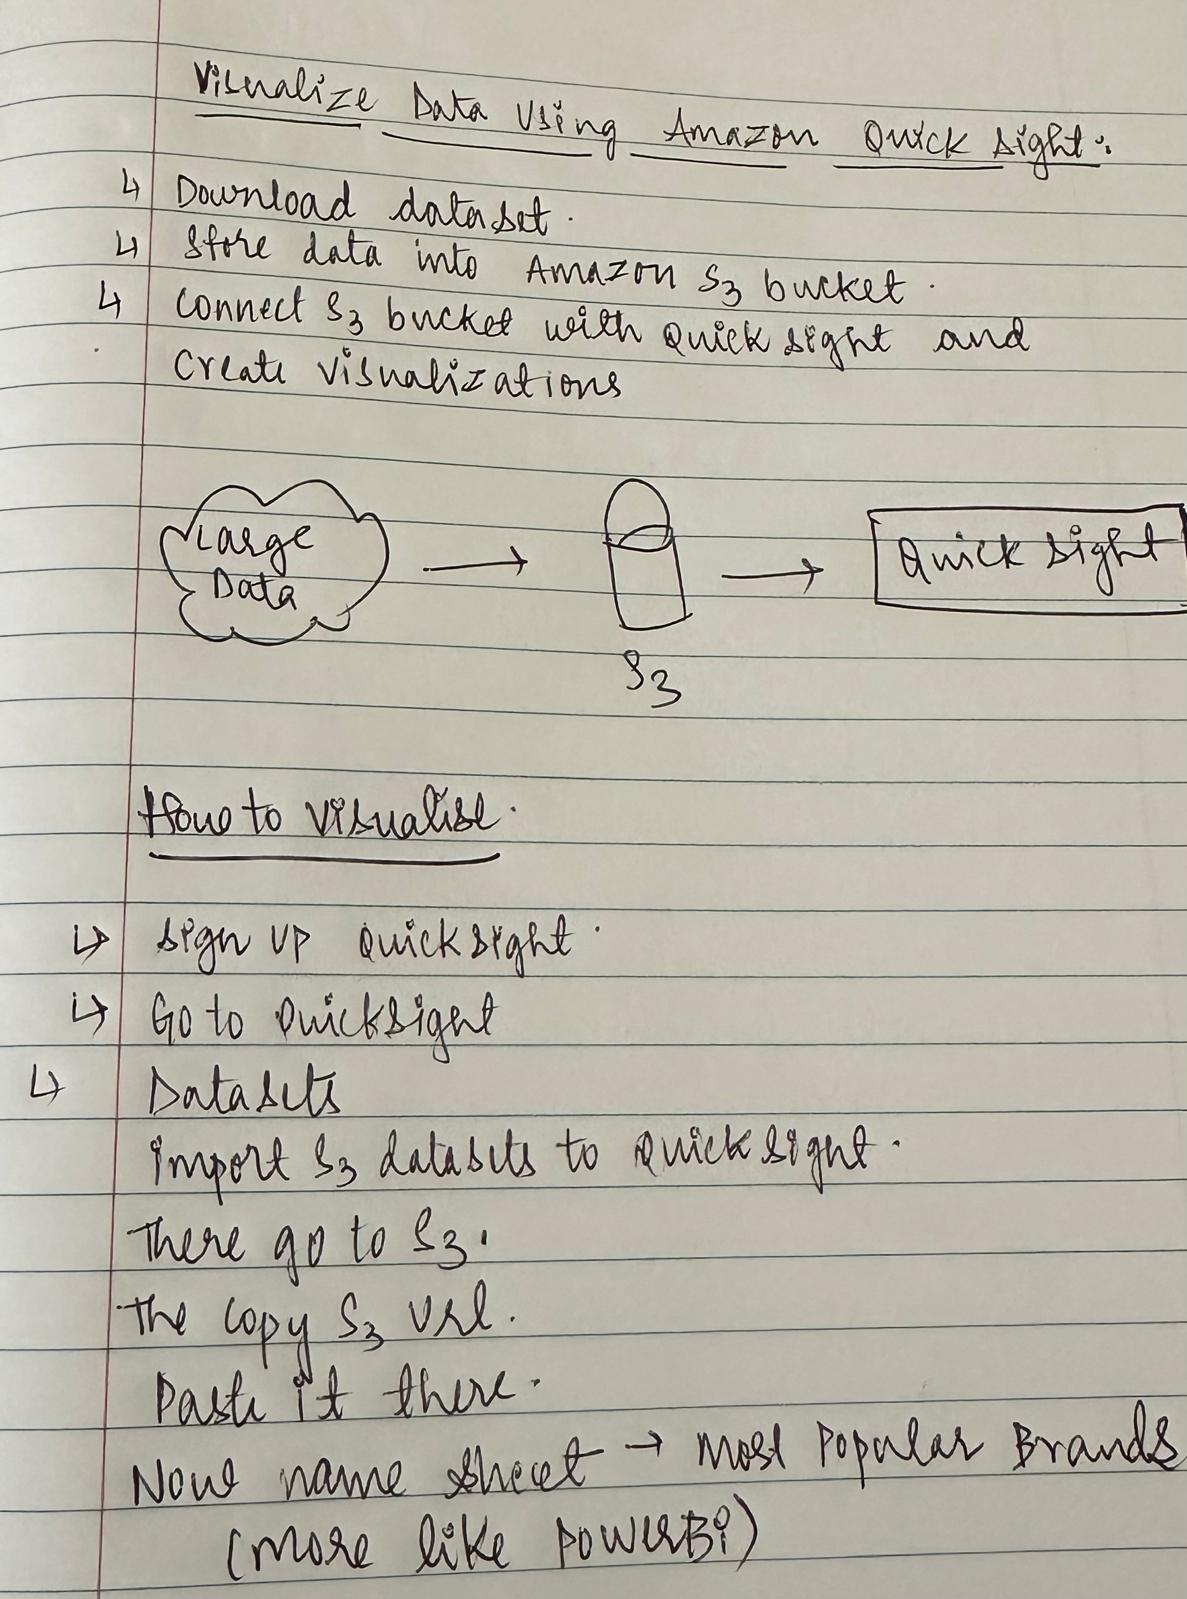 Visualize Data Using Amazon Quick Sight:
↳ Download dataset.
↳ Store data into Amazon S3 bucket.
↳ Connect S3 bucket with Quick sight and
Create visualizations
Large
Data
→ → Quick Sight
S3
How to visualise.
↳ Sign up Quicksight.
↳ Go to Quicksight
↳ Datasets
import S3 datasets to Quicksight.
There go to S3.
The copy S3 url.
Paste it there.
Now name sheet → Most Popular Brands
(more like PowerBi)